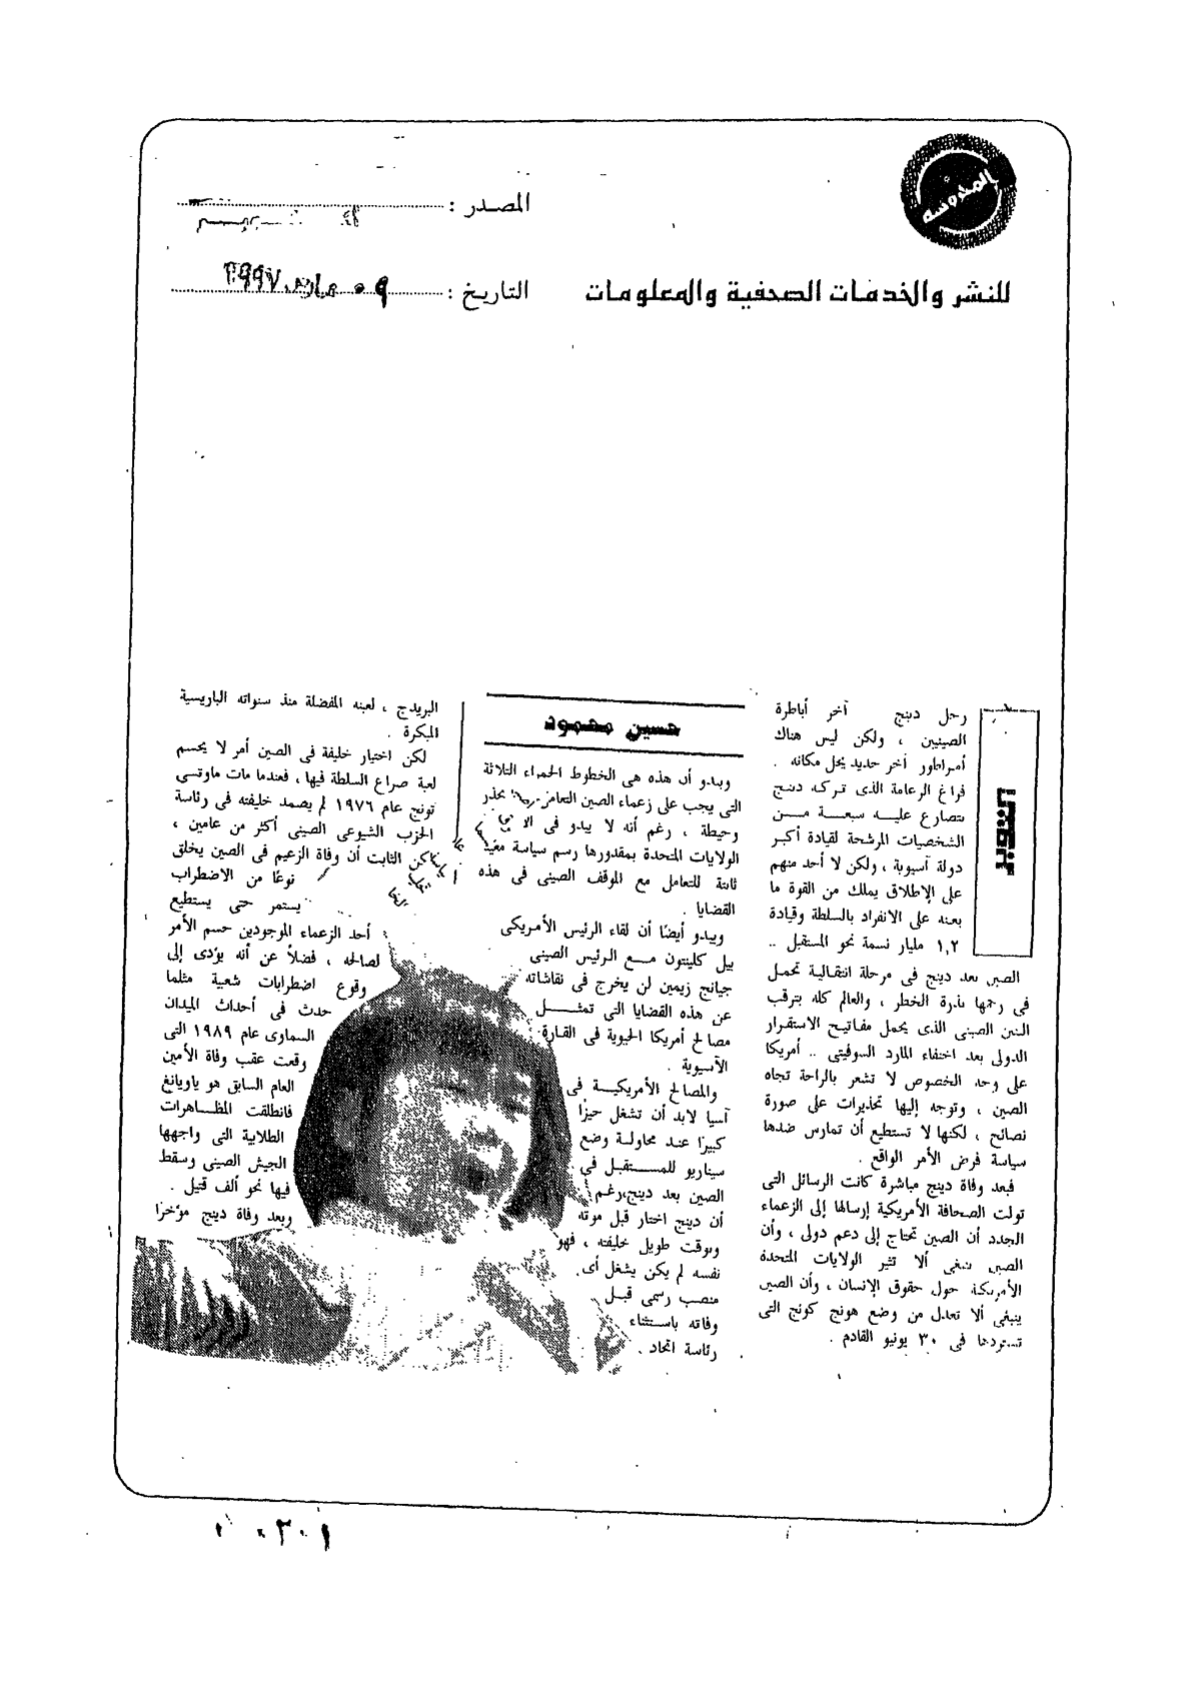 المدروسه
المصدر :
للنشر والخدمات الصحفية والمعلومات
التاريخ : ٠٩ مارس ١٩٩٧
رحل دينج آخر أباطرة
الصينيين ، ولكن ليس هناك
أمبراطور آخر جديد يحل مكانه .
فراغ الزعامة الذى تركه دينج
يتصارع عليه سبعة من
الشخصيات المرشحة لقيادة أكبر
دولة آسيوية ، ولكن لا أحد منهم
على الإطلاق يملك من القوة ما
يعينه على الانفراد بالسلطة وقيادة
١,٢ مليار نسمة نحو المستقبل ..
الصين بعد دينج فى مرحلة انتقالية تحمل
فى رحمها نذرة الخطر ، والعالم كله يترقب
التنين الصينى الذى يحمل مفاتيح الاستقرار
الدولى بعد اختفاء المارد السوفيتى .. أمريكا
على وجه الخصوص لا تشعر بالراحة تجاه
الصين ، وتوجه إليها تحذيرات على صورة
نصائح ، لكنها لا تستطيع أن تمارس ضدها
سياسة فرض الأمر الواقع .
فبعد وفاة دينج مباشرة كانت الرسائل التى
تولت الصحافة الأمريكية إرسالها إلى الزعماء
الجدد أن الصين تحتاج إلى دعم دولى ، وأن
الصين ينبغى ألا تثير الولايات المتحدة
الأمريكية حول حقوق الإنسان ، وأن الصين
ينبغى ألا تعدل من وضع هونج كونج التى
تستردها فى ٣٠ يونيو القادم .
حسين محمود
ويبدو أن هذه هى الخطوط الحمراء الثلاثة
التى يجب على زعماء الصين التعامل بحذر
وحيطة ، رغم أنه لا يبدو فى
الولايات المتحدة بمقدورها رسم سياسة
ثابتة للتعامل مع الموقف الصينى فى هذه
القضايا .
ويبدو أيضًا أن لقاء الرئيس الأمريكى
بيل كلينتون مع الرئيس الصينى
جيانج زيمين لن يخرج فى نقاشاته
عن هذه القضايا التى تمثل
مصالح أمريكا الحيوية فى القارة
الآسيوية .
والمصالح الأمريكية فى
آسيا لابد أن تشغل حيزًا
كبيرًا عند محاولة وضع
سيناريو للمستقبل فى
الصين بعد دينج،رغم
أن دينج اختار قبل موته
وبوقت طويل خليفته ، فهو
نفسه لم يكن يشغل أى
منصب رسمى قبل
وفاته باستثناء
رئاسة اتحاد .
البريدج ، لعبته المفضلة منذ سنواته الباريسية
المبكرة .
لكن اختيار خليفة فى الصين أمر لا يحسم
لعبة صراع السلطة فيها ، فعندما مات ماوتسى
تونج عام ١٩٧٦ لم يصمد خليفته فى رئاسة
الحزب الشيوعى الصينى أكثر من عامين ،
الثابت أن وفاة الزعيم فى الصين يخلق
نوعًا من الاضطراب
يستمر حتى يستطيع
أحد الزعماء الموجودين حسم الأمر
لصالحه ، فضلاً عن أنه يؤدى إلى
وقوع اضطرابات شعبية مثلما
حدث فى أحداث الميدان
السماوى عام ١٩٨٩ التى
وقعت عقب وفاة الأمين
العام السابق هو ياويانغ
فانطلقت المظاهرات
الطلابية التى واجهها
الجيش الصينى وسقط
فيها نحو ألف قتيل .
وبعد وفاة دينج مؤخرًا